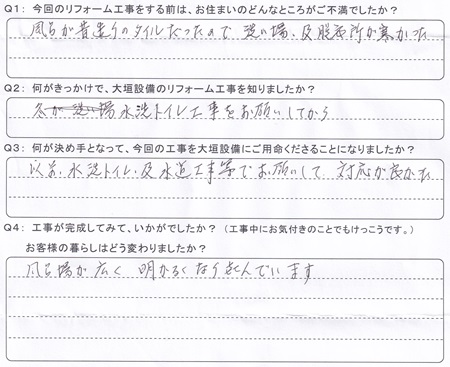 Q1: 今回のリフォーム工事をする前は、お住まいのどんなところがご不満でしたか？
風呂が昔造りのタイルだったので 洗い場、及脱衣所が寒かった
Q2: 何がきっかけで、大垣設備のリフォーム工事を知りましたか？
水洗トイレ工事をお願いしてから
Q3: 何が決め手となって、今回の工事を大垣設備にご用命くださることになりましたか？
以前、水洗トイレ、及水道工事等でお願いして 対応が良かった
Q4: 工事が完成してみて、いかがでしたか？（工事中にお気付きのことでもけっこうです。）
お客様の暮らしはどう変わりましたか？
風呂場が広く 明かるくなり喜んでいます